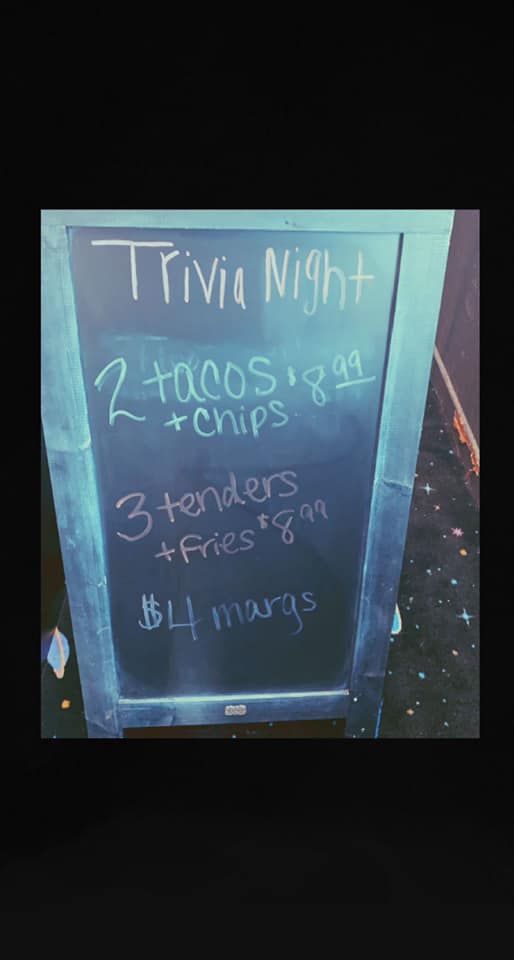 Trivia Night
2 tacos $8.99
+ chips
3 tenders
+ fries $8.99
$4 margs